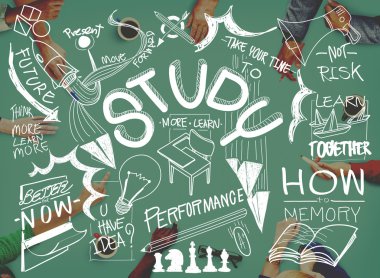 Present
Move
FORWARD
FUTURE
STUDY
- MORE - LEARN -
TAKE YOUR TIME
TO
- NOT -
RISK
LEARN
TOGETHER
THINK
MORE
LEARN
MORE
BETTER
- NOW -
U
HAVE
IDEA?
PERFORMANCE
HOW
to
MEMORY